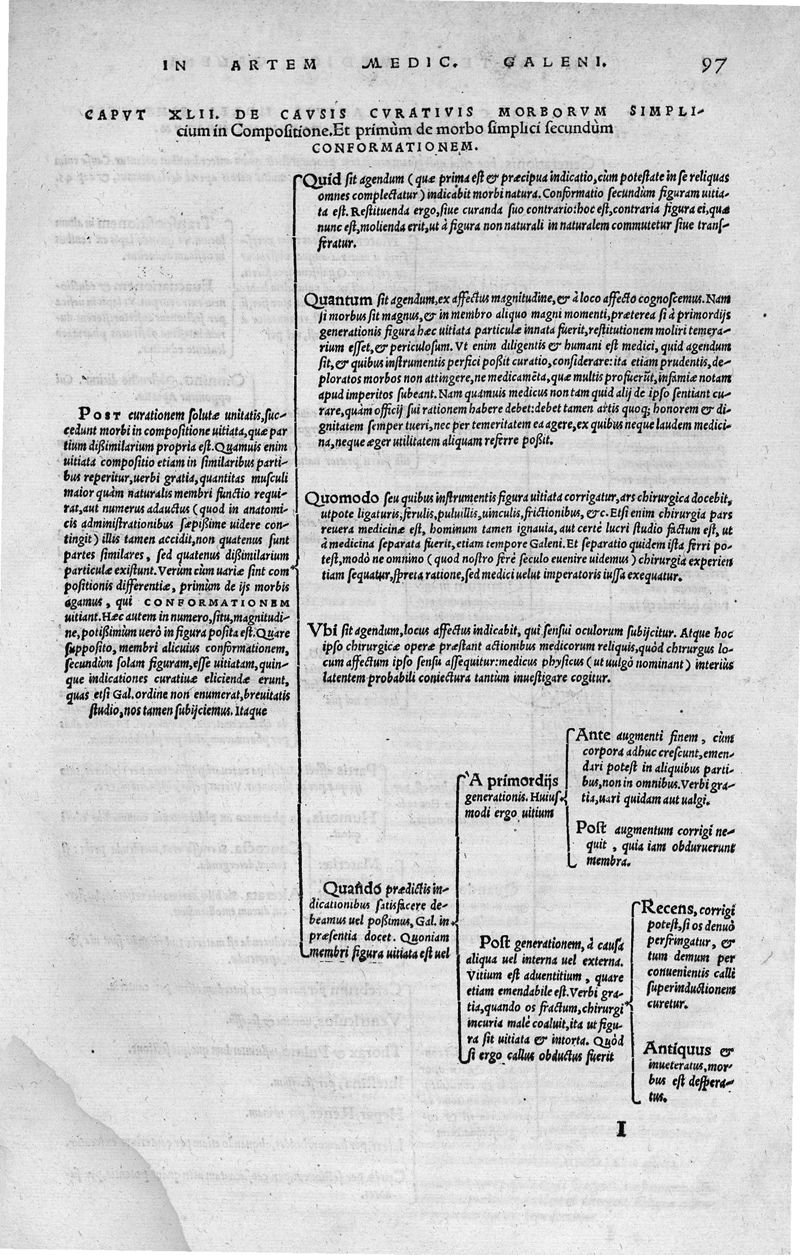 IN ARTEM MEDIC. GALENI. 97
CAPVT XLII. DE CAVSIS CVRATIVIS MORBORVM SIMPLI-
cium in Compositione. Et primùm de morbo simplici secundùm
CONFORMATIONEM.
POST curationem solutæ unitatis, suc-
cedunt morbi in compositione uitiata, quæ par
tium dißimilarium propria est. Quamuis enim
uitiata compositio etiam in similaribus parti-
bus reperitur, uerbi gratia, quantitas musculi
maior quàm naturalis membri functio requi-
rat, aut numerus adauctus (quod in anatomi-
cis administrationibus sæpißime uidere con-
tingit) illis tamen accidit, non quatenus sunt
partes similares, sed quatenus dißimilarium
particulæ existunt. Verùm cùm uariæ sint com
positionis differentiæ, primùm de ijs morbis
agamus, qui CONFORMATIONEM
uitiant. Hæc autem in numero, situ, magnitudi-
ne, potißimùm uerò in figura posita est. Quare
supposito, membri alicuius conformationem,
secundùm solam figuram, esse uitiatam, quin-
que indicationes curatiuæ eliciendæ erunt,
quas etsi Gal. ordine non enumerat, breuitatis
studio, nos tamen subijciemus. Itaque
Quid sit agendum (quæ prima est & præcipua indicatio, cùm potestate in se reliquas
omnes complectatur) indicabit morbi natura. Conformatio secundùm figuram uitia-
ta est. Restituenda ergo, siue curanda suo contrario: hoc est, contraria figura ei, quæ
nunc est, molienda erit, ut à figura non naturali in naturalem commutetur siue trans-
feratur.
Quantum sit agendum, ex affectus magnitudine, & à loco affecto cognoscemus. Nam
si morbus sit magnus, & in membro aliquo magni momenti, præterea si à primordijs
generationis figura hæc uitiata particulæ innata fuerit, restitutionem moliri temera-
rium esset, & periculosum. Vt enim diligentis & humani est medici, quid agendum
sit, & quibus instrumentis perfici poßit curatio, considerare: ita etiam prudentis, de-
ploratos morbos non attingere, ne medicamēta, quæ multis profuerūt, infamiæ notam
apud imperitos subeant. Nam quamuis medicus non tam quid alij de ipso sentiant cu-
rare, quàm officij sui rationem habere debet: debet tamen artis quoq; honorem & di-
gnitatem semper tueri, nec per temeritatem ea agere, ex quibus neque laudem medici-
na, neque æger utilitatem aliquam referre poßit.
Quomodo seu quibus instrumentis figura uitiata corrigatur, ars chirurgica docebit,
utpote ligaturis, ferulis, puluillis, uinculis, frictionibus, &c. Etsi enim chirurgia pars
reuera medicinæ est, hominum tamen ignauia, aut certè lucri studio factum est, ut
à medicina separata fuerit, etiam tempore Galeni. Et separatio quidem ista ferri po-
test, modò ne omnino (quod nostro ferè seculo euenire uidemus) chirurgia experien
tiam sequatur, spreta ratione, sed medici uelut imperatoris iussa exequatur.
Vbi sit agendum, locus affectus indicabit, qui sensui oculorum subijcitur. Atque hoc
ipso chirurgicæ operæ præstant actionibus medicorum reliquis, quòd chirurgus lo-
cum affectum ipso sensu assequitur: medicus physicus (ut uulgò nominant) interiùs
latentem probabili coniectura tantùm inuestigare cogitur.
Quando prædictis in-
dicationibus satisfacere de-
beamus uel poßimus, Gal. in
præsentia docet. Quoniam
membri figura uitiata est uel
A primordijs
generationis. Huius-
modi ergo uitium
Ante augmenti finem, cùm
corpora adhuc crescunt, emen-
dari potest in aliquibus parti-
bus, non in omnibus. Verbi gra-
tia, uari quidam aut ualgi.
Post augmentum corrigi ne-
quit, quia iam obduruerunt
membra.
Post generationem, à causa
aliqua uel interna uel externa.
Vitium est aduentitium, quare
etiam emendabile est. Verbi gra-
tia, quando os fractum, chirurgi
incuria malè coaluit, ita ut figu-
ra sit uitiata & intorta. Quòd
si ergo callus obductus fuerit
Recens, corrigi
potest, si os denuò
perfringatur, &
tum demum per
conuenientis calli
superinductionem
curetur.
Antiquus &
inueteratus, mor-
bus est despera-
tus.
I